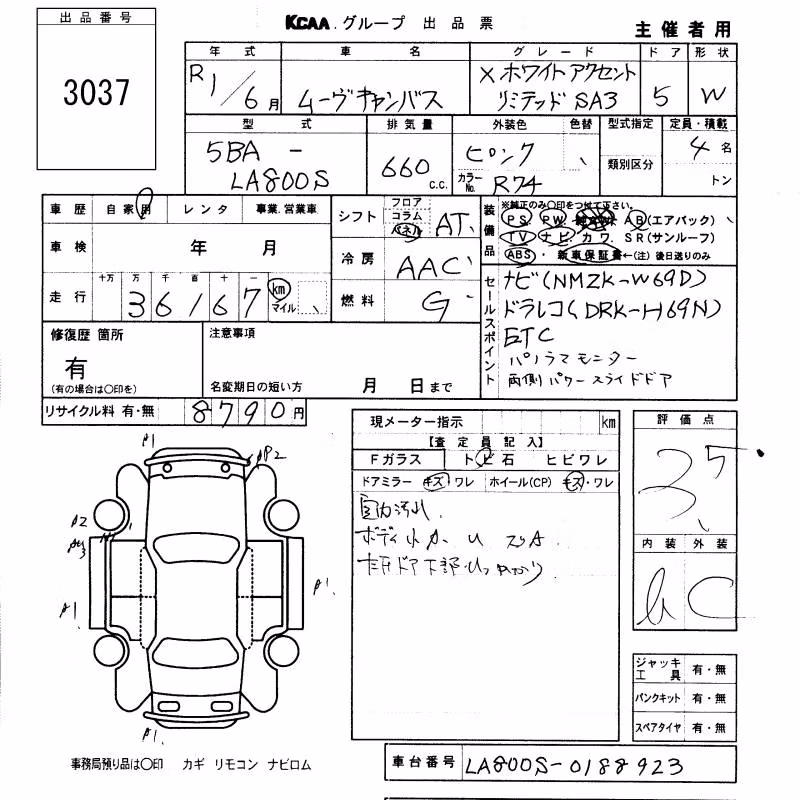 出品番号
3037
KCAA グループ 出品票
主催者用
年式 車名 グレード ドア 形状
R1/6月 ムーヴキャンバス Xホワイトアクセント
リミテッド SA3 5 W
型式 排気量 外装色 色替 型式指定 定員・積載
5BA - 660 c.c. ピンク 類別区分 4名
LA800S カラーNo. R74 トン
車歴 自家用 レンタ 事業.営業車
車検 年 月
走行 十万 万 千 百 十 一
36167 km マイル
シフト フロア コラム パネル AT
冷房 AAC
燃料 G
装備品 ※純正のみ○印をつけて下さい。
PS. PW. AB(エアバック)
TV ナビ. カワ. SR(サンルーフ)
ABS・ 新車保証書←(注)後日送りのみ
セールスポイント
ナビ(NMZK-W69D)
ドラレコ(DRK-H69N)
ETC
パノラマモニター
両側パワースライドドア
修復歴 箇所
有
(有の場合は○印を)
注意事項
名変期日の短い方 月 日まで
リサイクル料 有・無 8790円
現メーター指示 km
【査定員記入】
Fガラス トビ石 ヒビワレ
ドアミラー キズ・ワレ ホイール(CP) キズ・ワレ
室内汚れ
ボディ小
評価点
3.5
内装 外装
C
A1
AP2
A2
A1
A1
A1
ジャッキ工具 有・無
パンクキット 有・無
スペアタイヤ 有・無
事務局預り品は○印 カギ リモコン ナビロム
車台番号 LA800S-0188923